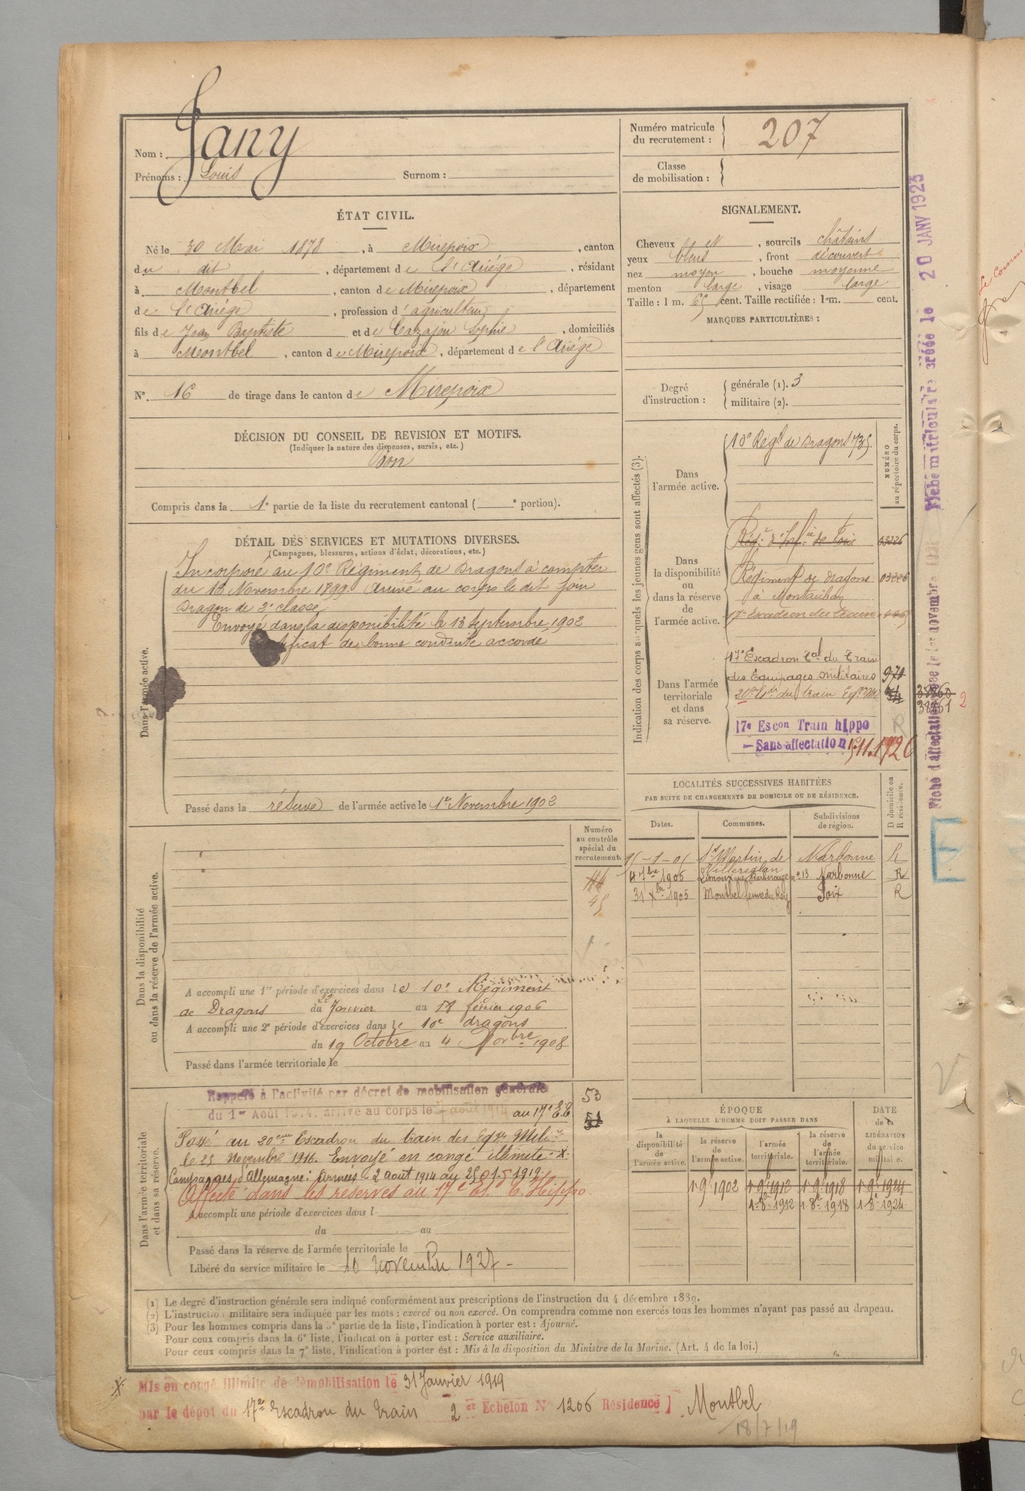 Nom : Jany
Prénoms : Louis Surnom :
Numéro matricule du recrutement : 207
Classe de mobilisation :
ÉTAT CIVIL.
Né le 30 Mai 1878, à Mirepoix, canton
du dit, département de l'Ariège, résidant
à Montbel, canton de Mirepoix, département
de l'Ariège, profession d'agriculteur
fils de Jean Baptiste et de Cazajou Sophie, domiciliés
à Montbel, canton de Mirepoix, département de l'Ariège
N° 16 de tirage dans le canton de Mirepoix
SIGNALEMENT.
Cheveux et, sourcils châtains
yeux bleus, front découvert
nez moyen, bouche moyenne
menton large, visage large
Taille : 1 m. 65 cent. Taille rectifiée : 1 m. cent.
MARQUES PARTICULIÈRES :
Degré d'instruction : générale (1). 3
militaire (2).
DÉCISION DU CONSEIL DE REVISION ET MOTIFS.
(Indiquer la nature des dispenses, sursis, etc.)
Bon
Compris dans la 1e partie de la liste du recrutement cantonal ( e portion).
DÉTAIL DES SERVICES ET MUTATIONS DIVERSES.
(Campagnes, blessures, actions d'éclat, décorations, etc.)
Dans l'armée active.
Incorporé au 10e Régiment de Dragons à compter
du 13 Novembre 1899 Arrivé au corps le dit jour
Dragon de 2e classe
Envoyé dans la disponibilité le 13 Septembre 1902
ificat de bonne conduite accordé
Passé dans la réserve de l'armée active le 1er Novembre 1902
Indication des corps auxquels les jeunes gens sont affectés (3).
NUMÉRO au répertoire du corps.
Dans l'armée active.
10e Régt de Dragons 735
Dans la disponibilité ou dans la réserve de l'armée active.
Régt d'Infie de Foix
Régiment de dragons
à Montauban
17e Escadron du Train
Dans l'armée territoriale et dans sa réserve.
17e Escadron Tal du Train
des Equipages militaires 971
20e du train Eq
17e Escon Train hippo
– Sans affectation 1926
38860
38861 2
Fiche matriculaire créée le 20 JANV 1923
Fiche d'affectation créée le 1er novembre
E
LOCALITÉS SUCCESSIVES HABITÉES
PAR SUITE DE CHANGEMENTS DE DOMICILE OU DE RÉSIDENCE.
Dates. Communes. Subdivisions de région. D domicile ou R résidence.
-1-05 St Martin de Villereglan Narbonne R
1905 n° 13 Narbonne R
31 Xbre 1905 Montbel Foix R
Numéro au contrôle spécial du recrutement
Dans la disponibilité ou dans la réserve de l'armée active.
A accompli une 1re période d'exercices dans le 10e Régiment
de Dragons du Janvier au 18 février 1906
A accompli une 2e période d'exercices dans le 10e dragons
du 19 Octobre au 4 Novbre 1908
Passé dans l'armée territoriale le
Dans l'armée territoriale et dans sa réserve.
Rappelé à l'activité par décret de mobilisation générale 53
du 1er Août 1914. arrivé au corps le août 1914 au 17e
Passé au 20eme Escadron du train des Eqges Milires
le 25 Novembre 1916. Envoyé en congé illimité X
Campagnes d'Allemagne : Armées le 2 août 1914 au
Affecté dans les réserves au 17e Hippo
A accompli une période d'exercices dans l
du au
Passé dans la réserve de l'armée territoriale le
Libéré du service militaire le 10 novembre 1927 -
ÉPOQUE
À LAQUELLE L'HOMME DOIT PASSER DANS
DATE de la LIBÉRATION du service militaire.
la disponibilité de l'armée active. la réserve de l'armée active. l'armée territoriale. la réserve de l'armée territoriale.
1-9-1902 1-9-1912 1-9-1918 1-9-1924
1-8bre 1912 1-8bre 1918 1-8bre 1924
(1) Le degré d'instruction générale sera indiqué conformément aux prescriptions de l'instruction du 4 décembre 1889.
(2) L'instruction militaire sera indiquée par les mots : exercé ou non exercé. On comprendra comme non exercés tous les hommes n'ayant pas passé au drapeau.
(3) Pour les hommes compris dans la 5e partie de la liste, l'indication à porter est : Ajourné.
Pour ceux compris dans la 6e liste, l'indication à porter est : Service auxiliaire.
Pour ceux compris dans la 7e liste, l'indication à porter est : Mis à la disposition du Ministre de la Marine. (Art. 4 de la loi.)
X Mis en congé illimité de démobilisation le 31 Janvier 1919
par le dépôt du 17e Escadron du Train 2e Echelon N° 1206 Résidence Montbel
18/7/19